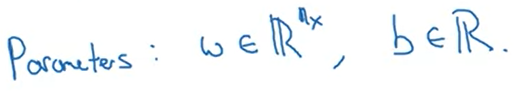 Parameters : w ∈ ℝ^{n_x}, b ∈ ℝ.